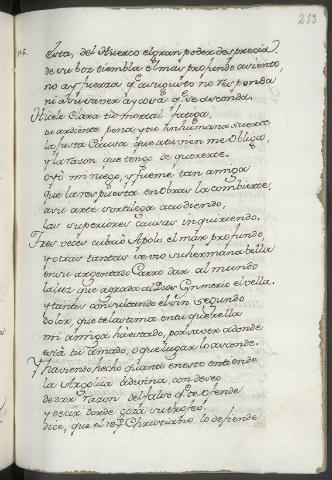 253
Esta, del Huerco el gran poder desprecia
de su boz tiembla el mas profundo asiento,
no ay fuerza q̃ a su gusto no responda
ni a su saver ay cosa q̃ se asconda.
Hicele clara tu mortal fatiga,
tu ardiente pena, y tu inhumana suerte,
la justa causa que a tu vien me obliga,
y la razon que tengo de quererte.
oyo mi ruego, y fueme tan amiga
que la respuesta en obras la combierte,
a su arte sortilega acudiendo,
las superiores causas inquiriendo.
Tres veces cubrio Apolo el mar profundo
y otras tantas se vio su hermana bella
en su argentado Carro dar al mundo
la luz que agrada al Dios Cymerio el vella.
y tantas consultando el sin segundo
dolor, que te lastima en tu querella
mi amiga ha estado, por saver adonde
está tu amado, o que lugar lo asconde.
Y haviendo hecho quanto en esto entiende
la Argolica adivina, con deseo
de dar razon del falso q̃ te ofende
y decir donde goza su trofeo.
dice, que el rey Christiano lo defiende